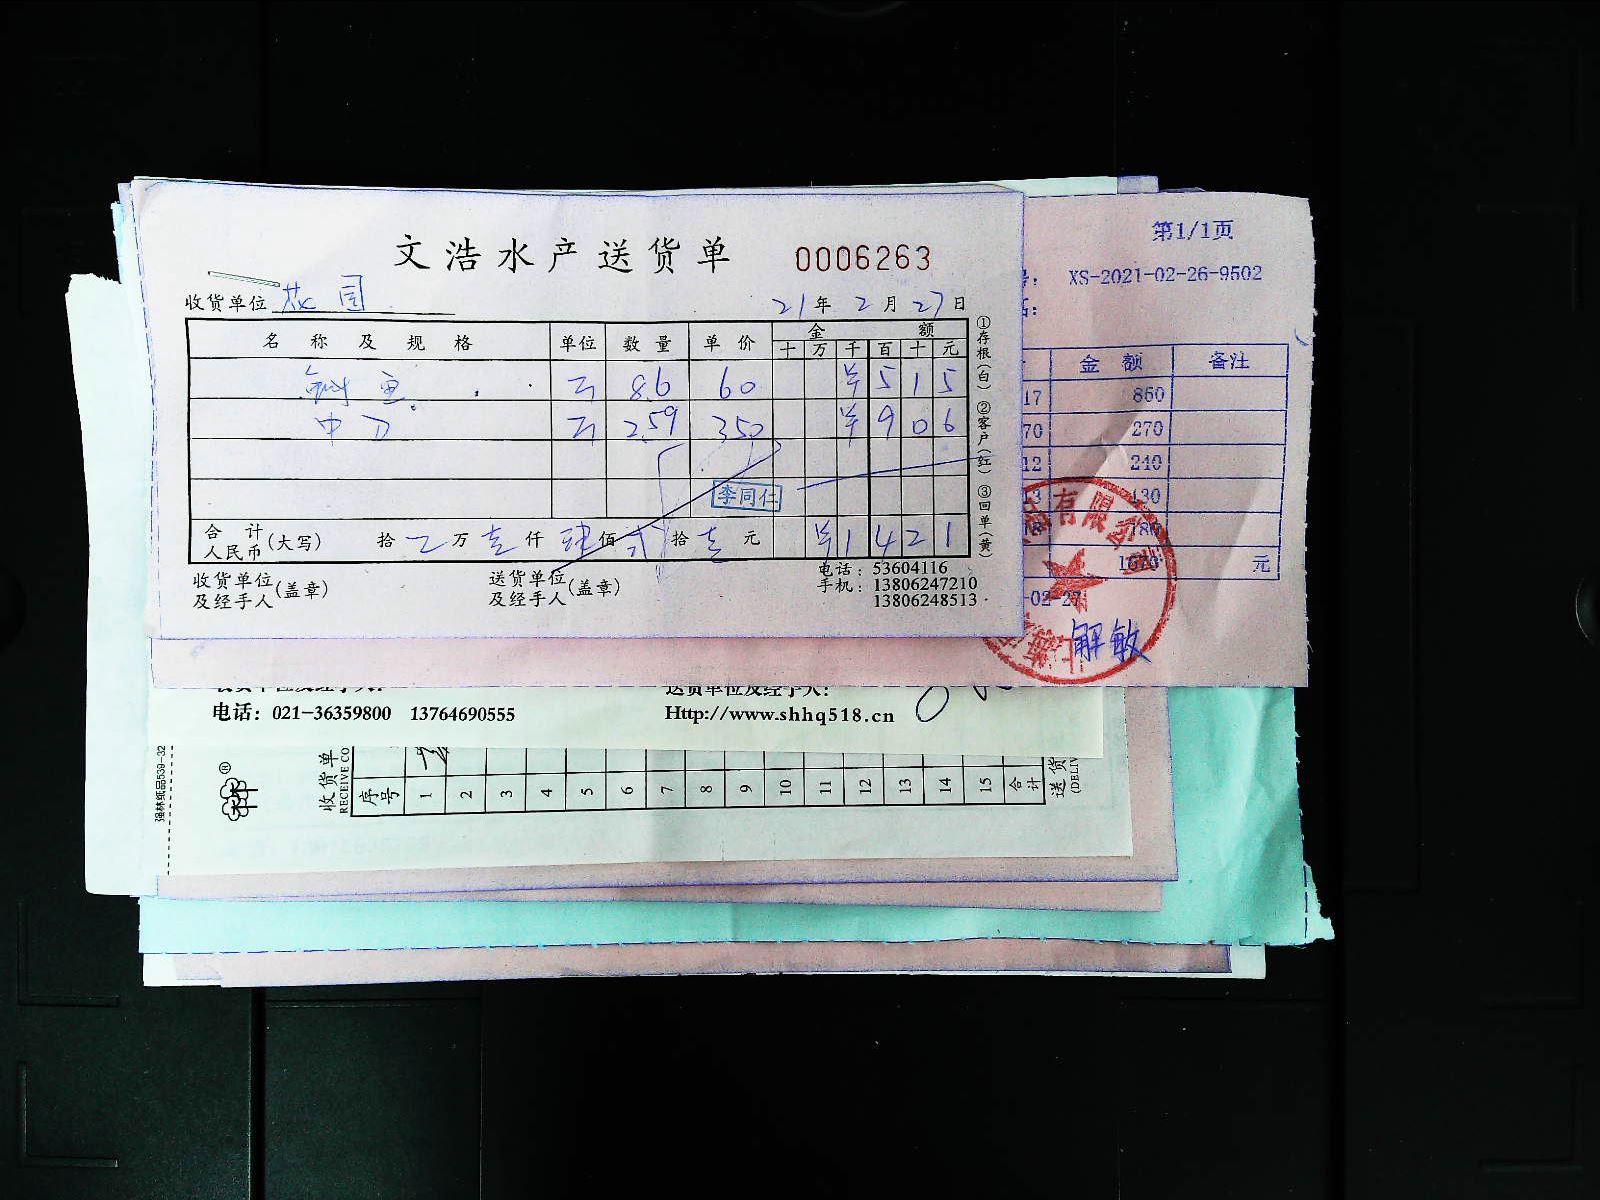 文浩水产送货单 0006263
收货单位 花园 21年2月27日
名称及规格 单位 数量 单价 金额
十 万 千 百 十 元
鱼 8.6 60 ¥ 5 1 5
中刀 2.59 350 ¥ 9 0 6
李同仁
合计人民币(大写) 拾 万 壹 仟 肆 佰 贰 拾 壹 元 ¥ 1 4 2 1
收货单位及经手人(盖章) 送货单位及经手人(盖章)
电话：53604116
手机：13806247210
13806248513
①存根(白) ②客户(红) ③回单(黄)
第1/1页
号： XS-2021-02-26-9502
话：
金额 备注
17 850
70 270
12 240
13 130
180
1670 元
-02-27
有限公司
解敏
电话：021-36359800 13764690555
送货单位及经手人：
Http://www.shhq518.cn
强林纸品539-32
收货单
RECEIVE CO
序号 1 2 3 4 5 6 7 8 9 10 11 12 13 14 15 合计
送货
(DELIV